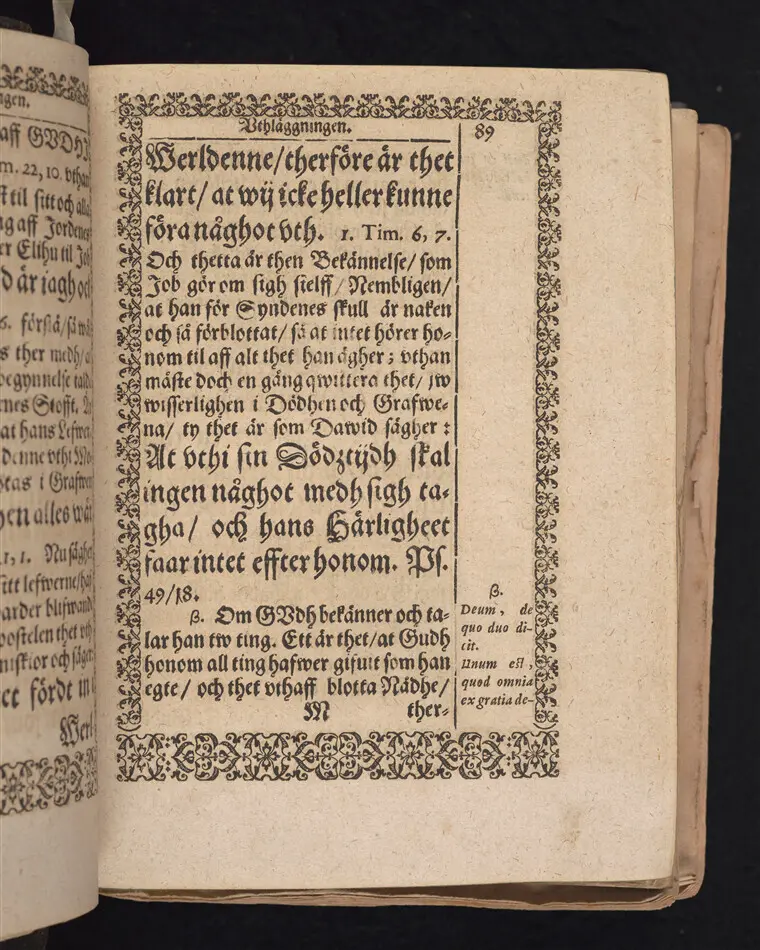 ngen.
aff GVDH
m. 22, 10. vthan
til sitt och
aff Jorden
er Elihu til Job
är iagh och
6. förstå/så
s ther medh/
begynnelse
nes Stofft.
at hans Lefwe
denne vthi
tas i Grafwen
en alles
21, 1. Nu sägher
sitt lefwerne/
arder blifwand
postelen thet
niskior och säger
et fördt in
Werl
Vthläggningen.
89
Werldenne/therföre är thet
klart/ at wij icke heller kunne
föra någhot vth. 1. Tim. 6, 7.
Och thetta är then Bekännelse/ som
Job gör om sigh sielff/ Nembligen/
at han för Syndenes skull är naken
och så förblottat/ så at intet hörer ho-
nom til aff alt thet han ägher; vthan
måste doch en gång qwittera thet/ jw
wisserlighen i Dödhen och Grafwe-
na/ ty thet är som Dawid sägher:
At vthi sin Dödztijdh skal
ingen någhot medh sigh ta-
gha/ och hans Härligheet
faar intet effter honom. Ps.
49/18.
ß. Om GVdh bekänner och ta-
lar han tw ting. Ett är thet/at Gudh
honom all ting hafwer gifuit som han
egte/ och thet vthaff blotta Nådhe/
M ther-
ß.
Deum, de
quo duo di-
cit.
Unum est,
quod omnia
ex gratia de-